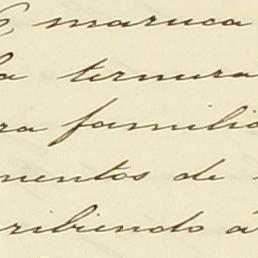 maruca
la ternura
ra familia
mentos de
ribiendo á